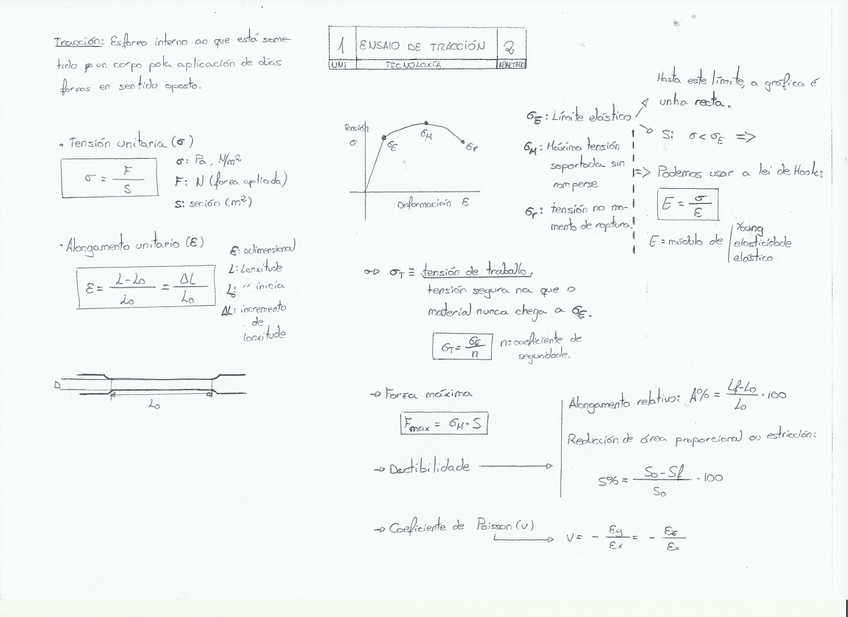 1 ENSAIO DE TRACCIÓN 2
UNI TECNOLOXÍA APARTADO
Tracción: Esforzo interno ao que está some-
tido un corpo pola aplicación de dúas
forzas en sentido oposto.
• Tensión unitaria (σ)
σ = F / S
σ: Pa, N/m²
F: N (forza aplicada)
S: sección (m²)
• Alongamento unitario (ε)
ε = L - L₀ / L₀ = ΔL / L₀
ε: adimensional
L: Lonxitude
L₀: '' inicia
ΔL: incremento
de
lonxitude
D
L₀
Tensión
σ
σE
σM
σr
Deformación ε
σE: Límite elástico
σM: Máxima tensión
soportada sin
romperse
σr: tensión no mo-
mento de roptura.
Hasta este límite, a gráfica é
unha recta.
Si σ < σE =>
=> Podemos usar a lei de Hook:
E = σ / ε
E = módulo de
Young
elasticidade
elástico
σT ≡ tensión de traballo,
tensión segura na que o
material nunca chega a σE.
σT = σE / n
n: coeficiente de
seguridade.
→ Forza máxima
Fmax = σM · S
→ Ductibilidade
Alongamento relativo: A% = Lf - L₀ / L₀ · 100
Reducción de área proporcional ou estricción:
S% = S₀ - Sf / S₀ · 100
→ Coeficiente de Poisson (υ)
υ = - εy / εx = - εz / εx